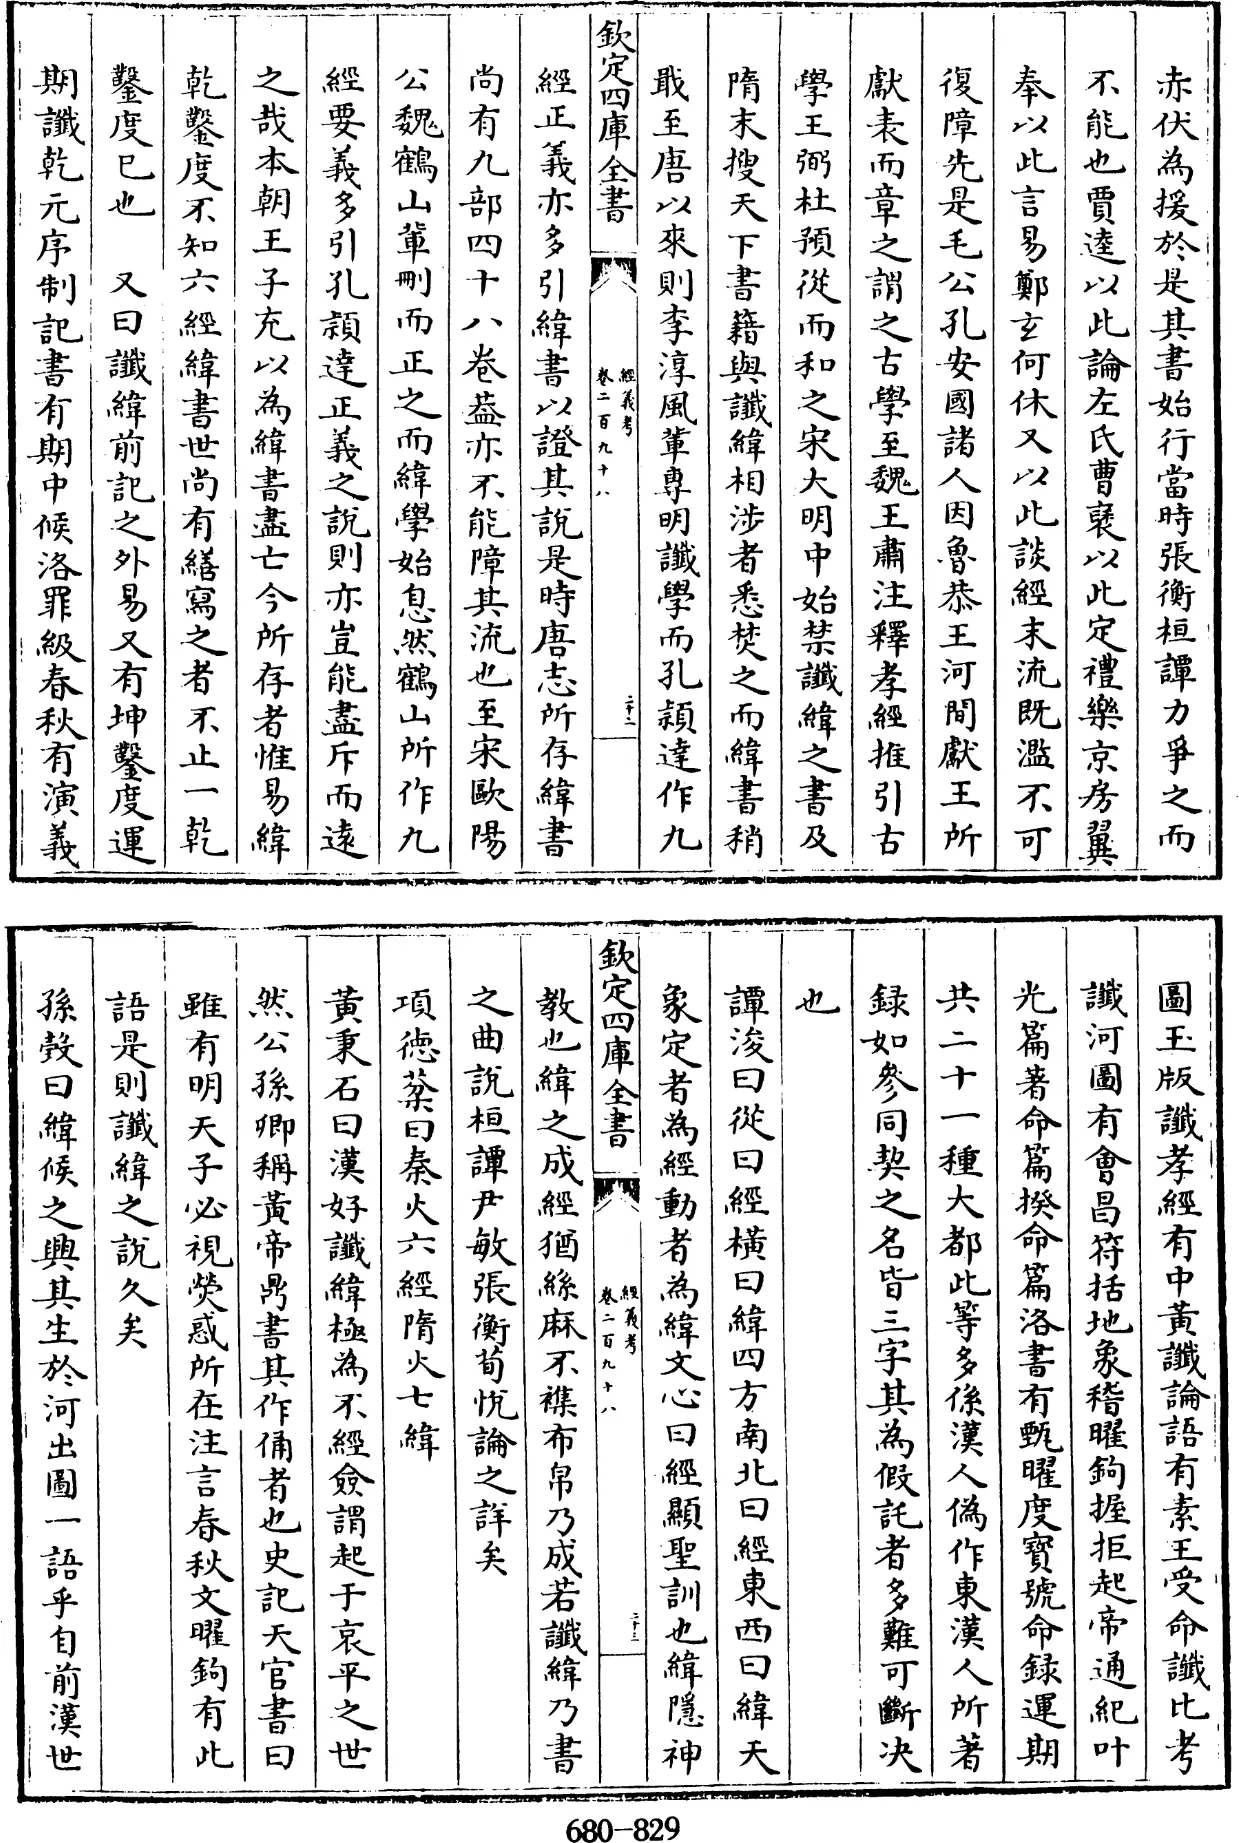 赤伏為援於是其書始行當時張衡桓譚力爭之而
不能也賈逵以此論左氏曹褒以此定禮樂京房翼
奉以此言易鄭玄何休又以此談經末流既濫不可
復障先是毛公孔安國諸人因魯恭王河間獻王所
獻表而章之謂之古學至魏王肅注釋孝經推引古
學王弼杜預從而和之宋大明中始禁讖緯之書及
隋末搜天下書籍與讖緯相涉者悉焚之而緯書稍
戢至唐以來則李淳風軰專明讖學而孔穎達作九
欽定四庫全書
經義考
卷二百九十八
二十二
經正義亦多引緯書以證其說是時唐志所存緯書
尚有九部四十八卷葢亦不能障其流也至宋歐陽
公魏鶴山軰刪而正之而緯學始息然鶴山所作九
經要義多引孔穎達正義之說則亦豈能盡斥而遠
之哉本朝王子充以為緯書盡亡今所存者惟易緯
乾鑿度不知六經緯書世尚有繕寫之者不止一乾
鑿度已也　又曰讖緯前記之外易又有坤鑿度運
期讖乾元序制記書有期中候洛罪級春秋有演義
圖玉版讖孝經有中黃讖論語有素王受命讖比考
讖河圖有會昌符括地象稽曜鉤握拒起帝通紀叶
光篇著命篇揆命篇洛書有甄曜度寳號命録運期
共二十一種大都此等多係漢人偽作東漢人所著
録如參同契之名皆三字其為假託者多難可斷决
也
譚浚曰從曰經橫曰緯四方南北曰經東西曰緯天
象定者為經動者為緯文心曰經顯聖訓也緯隱神
欽定四庫全書
經義考
卷二百九十八
二十三
教也緯之成經猶絲麻不襍布帛乃成若讖緯乃書
之曲說桓譚尹敏張衡荀悅論之詳矣
項德棻曰秦火六經隋火七緯
黃秉石曰漢好讖緯極為不經僉謂起于哀平之世
然公孫卿稱黃帝鼎書其作俑者也史記天官書曰
雖有明天子必視熒惑所在注言春秋文曜鉤有此
語是則讖緯之說久矣
孫瑴曰緯候之興其生於河出圖一語乎自前漢世
680-829